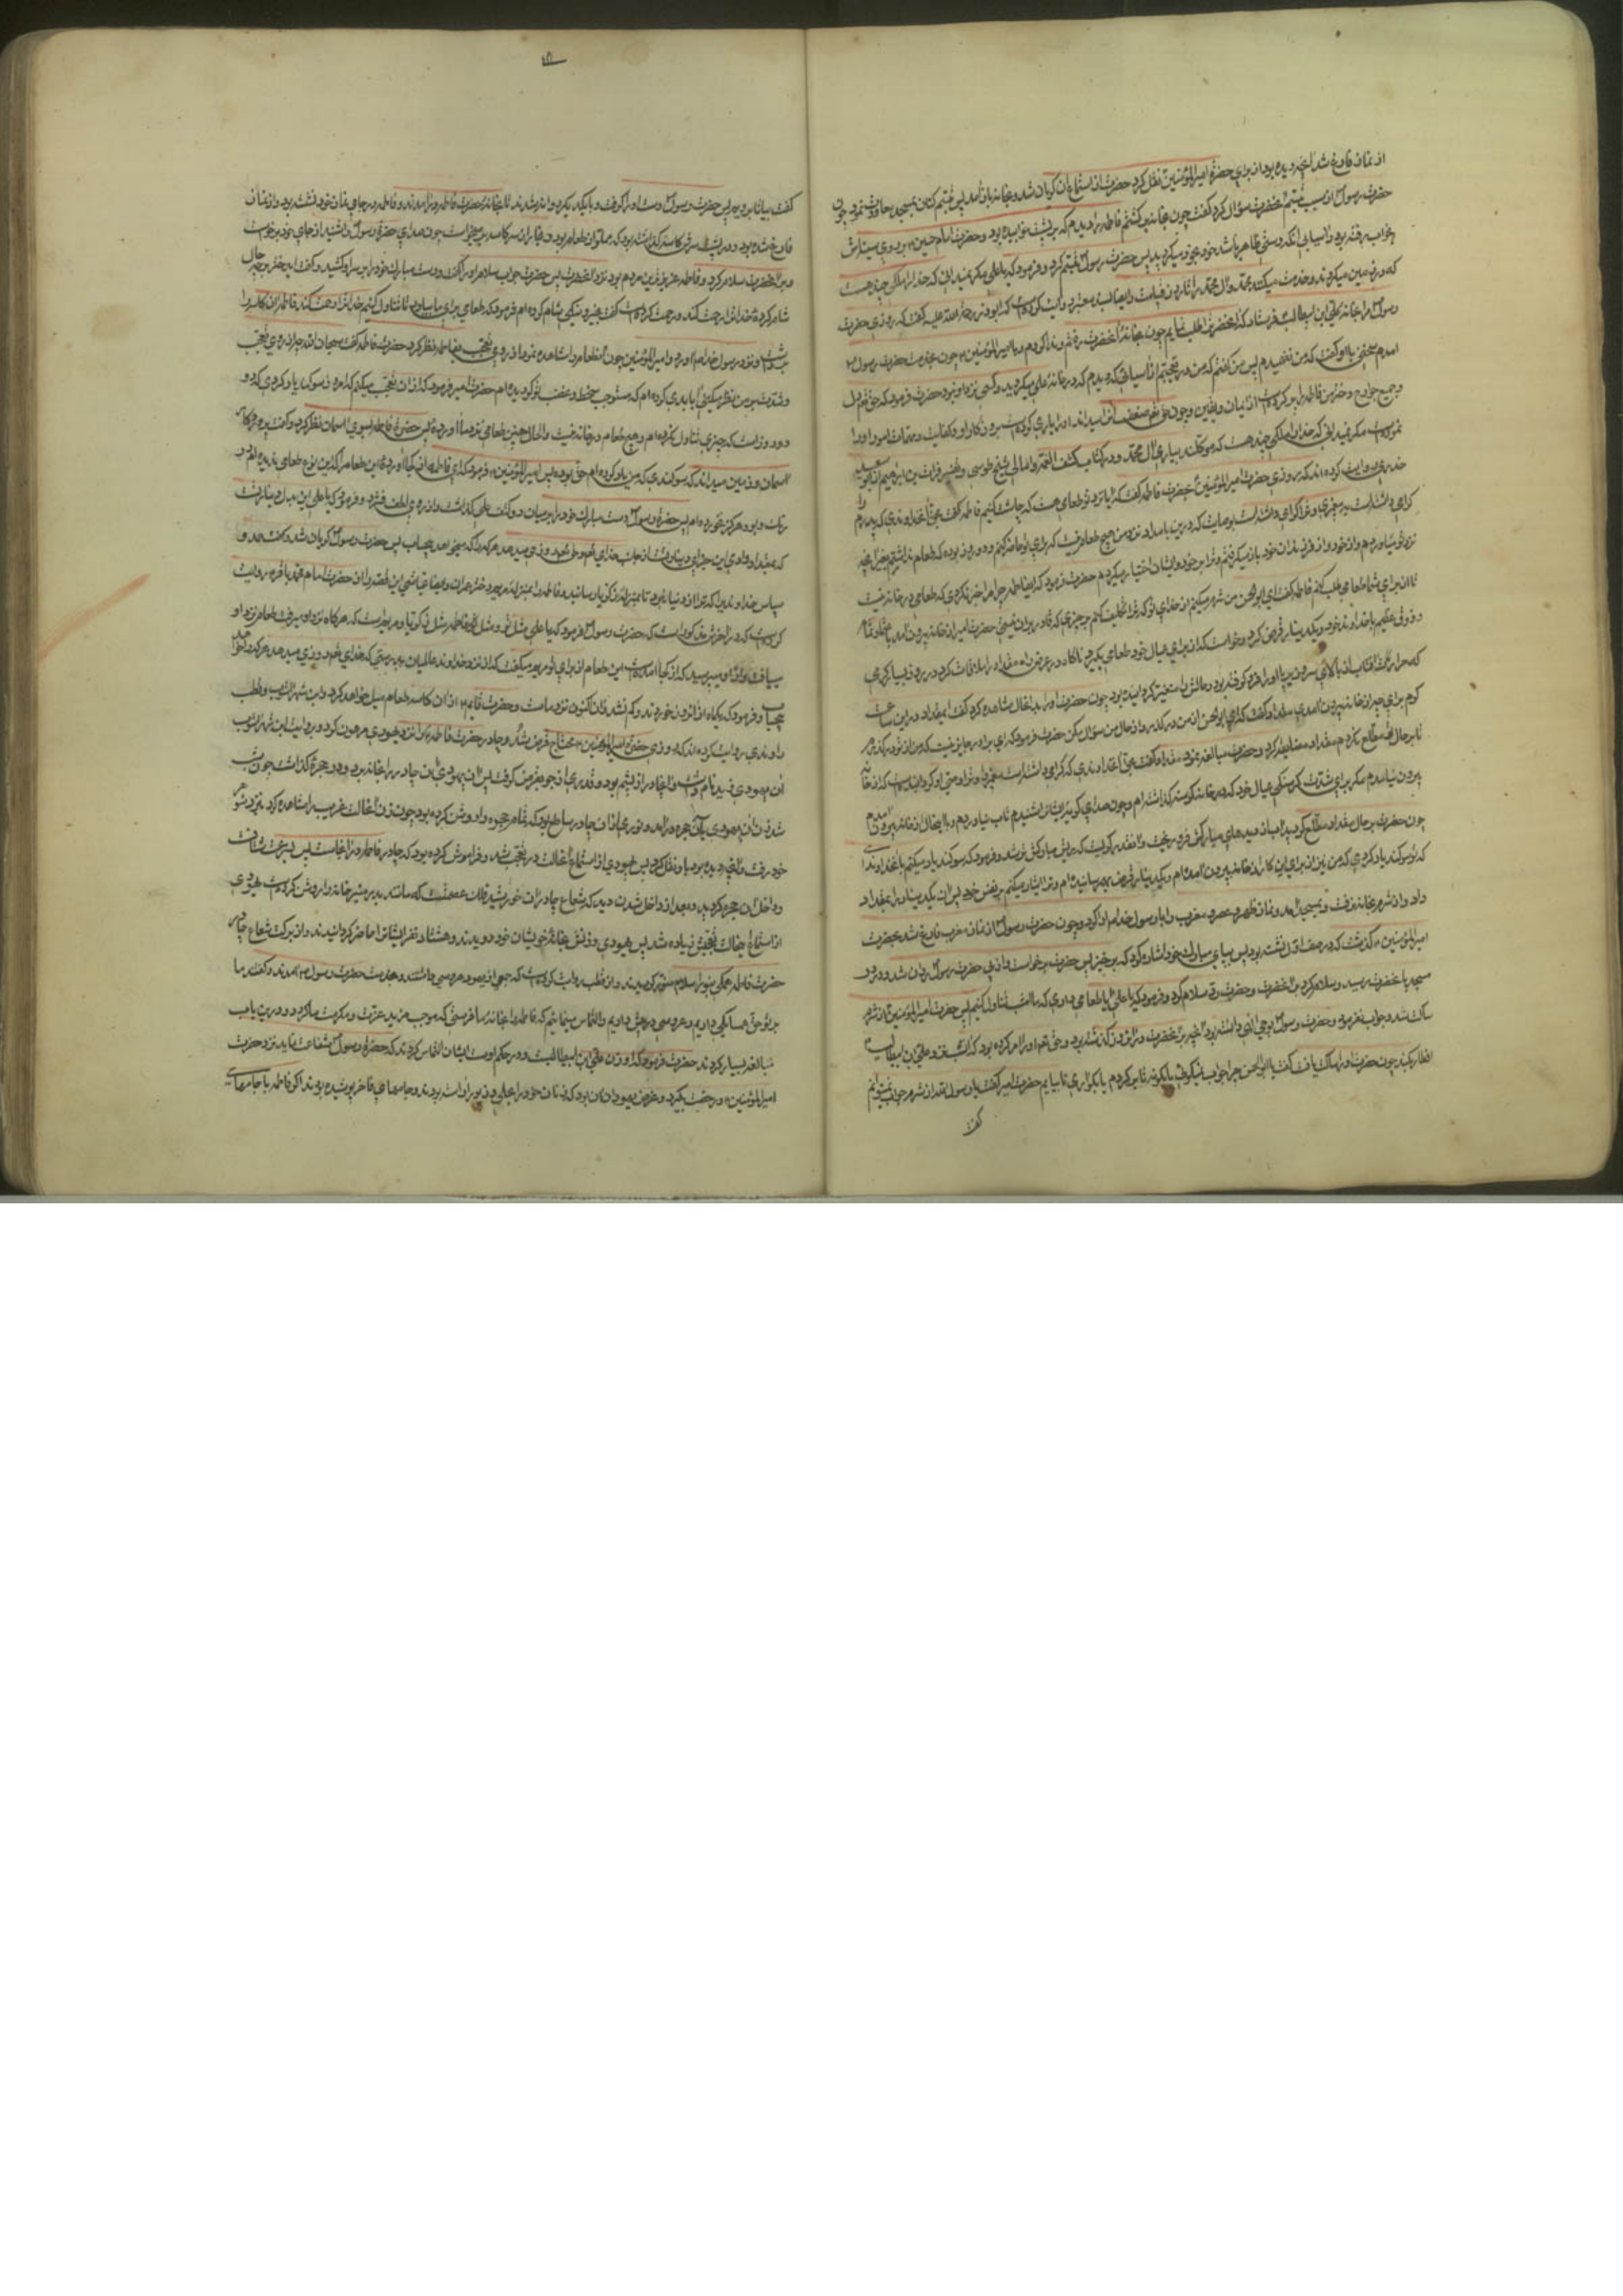 از نماز فارغ شد آنچه دیده بود از برای حضرة امیرالمؤمنین نقل کرد حضرت از استماع آن گریان شد و بخانه باز آمد پس تبسم کنان بمسجد معاودت نمود چون
حضرت رسول از سبب تبسم آنحضرت سؤال کرد گفت چون بخانه برگشتم فاطمه را دیدم که بر پشت خوابیده بود و حضرت امام حسین بر روی سینه‌اش
بخواب رفته بود و آسیا بی آنکه دستی ظاهر باشد خود بخود میگردید پس حضرت رسول تبسم کرد و فرمود که یا علی مگر نمیدانی که خدا را ملکی چند هست
که در زمین میگردند و خدمت میکنند محمد و آل محمد را تا روز قیامت و ایضا بسند معتبر روایت کرده است که ابوذر رحمة الله علیه گفت که روزی حضرت
رسول مرا بخانه علی ابن ابیطالب فرستاد که آنحضرت را طلب نمایم چون بخانه آنحضرت رفتم و ندا کردم و با امیرالمؤمنین چون بخدمت حضرت رسول
آمدم سخنی با او گفت که من نفهمیدم پس من گفتم که من در تعجبم از آسیائی که دیدم که در خانه علی میگردید و کسی نزد او نبود حضرت فرمود که حق تعالی دل
و جمیع جوارح دختر من فاطمه را پر کرده است از ایمان و یقین و چون حق تعالی ضعف او را میداند او را یاری کرده است بر روزگار او و کفایت مهمات امور او را
نموده است مگر نمیدانی که خدا را ملکی چند هست که موکلند بیاری آل محمد و در کتاب کشف الغمه و امالی شیخ طوسی و تفسیر فرات بن ابراهیم از ابو سعید
خدری روایت کرده‌اند که روزی حضرت امیرالمؤمنین بحضرت فاطمه گفت که آیا نزد تو طعامی هست که چاشت کنیم فاطمه گفت بحق آنخداوندی که پدرم را
گرامی داشته است به پیغمبری و ترا گرامی داشته است بوصایت که در این بامداد نزد من هیچ طعام نیست که برای تو حاضر کنم و دو روز بوده که طعام نداشتم بغیر آنچه
نزد تو میاوردم و از خود و از فرزندان خود باز میگرفتم و ترا بر خود و ایشان اختیار میکردم حضرت فرمود که ای فاطمه چرا مرا خبر نکردی که طعامی در خانه نیست
تا از برای شما طعامی طلب کنم فاطمه گفت ای ابوالحسن من شرم میکنم از خدای تو که ترا تکلیف کنم بر چیزی که قادر بر آن نیستی حضرت امیر از خانه بیرون آمد با اعتماد تمام
و وثوق عظیم با خداوند خود و یکدینار قرض کرد و خواست که از برای عیال خود طعامی بگیرد ناگاه در عرض راه مقداد را ملاقات کرد در روز بسیار گرمی
که حرارت آفتاب از بالای سر و زیر پا او را فرو گرفته بود و حالش را متغیر کردانیده بود چون حضرت او را بدانحال مشاهده کرد گفت ای مقداد در این ساعت
گرم برای چه از خانه بیرون آمدی مقداد گفت که ای ابوالحسن از من درگذر و از حال من سؤال مکن حضرت فرمود که ای برادر جایز نیست که من از تو درگذرم
تا بر حال تو مطلع نگردم مقداد مضایقه کرد و حضرت مبالغه نمود مقداد گفت بحق آنخداوندی که گرامی داشته است محمد را و ترا وصی او گردانیده است که از خانه
بیرون نیامدم مگر برای شدت گرسنگی عیال خود که در خانه گرسنه گذاشته‌ام و چون صدای گریه ایشان شنیدم تاب نیاوردم و با اینحال از خانه بیرون آمدم
چون حضرت بر حال مقداد مطلع گردید آب از دیدهای مبارکش فرو ریخت و آنقدر گریست که ریش مبارکش تر شد و فرمود که سوگند یاد میکنم بآنخداوندی
که تو سوگند یاد کردی که من نیز از برای این کار از خانه بیرون آمده‌ام و یکدینار قرض بهم رسانیده‌ام و ترا ایثار میکنم بر نفس خود پس آن یکدینار را بمقداد
داد و از شرم بخانه نرفت و بمسجد آمد و نماز ظهر و عصر و مغرب را با رسول خدا ادا کرد و چون حضرت رسول از نماز مغرب فارغ شد بحضرت
امیرالمؤمنین گذشت که در صف اول نشسته بود پس بپای مبارک خود اشاره کرد که برخیز پس حضرت برخواست و از پی حضرت رسول روان شد و در در
مسجد بآنحضرت رسید و سلام کرد بر آنحضرت و حضرت رد سلام کرد و فرمود که یا علی آیا طعامی داری که ما امشب تناول کنیم پس حضرت امیرالمؤمنین از شرم
ساکت شد و جواب نفرمود و حضرت رسول بوحی الهی دانسته بود آنچه بر آنحضرت در آنروز گذشته بود و حق تعالی او را امر کرده بود که امشب نزد علی بن ابیطالب
افطار بکند چون حضرت او را ساکت یافت گفت یا ابا الحسن چرا جواب نمیگوئی یا بگو نه تا برگردم یا بگو آری تا بیایم حضرت امیر گفت یا رسول الله از شرم جواب نمیتوانم
گفت
گفت بیا تا برویم پس حضرت رسول دست او را گرفت و با یکدیگر روانه شدند تا بخانه حضرت فاطمه درآمدند و فاطمه در جای نماز خود نشسته بود و از نماز
فارغ شده بود و در پشت سرش کاسه گذاشته بود که مملو از طعام بود و بخار از سر کاسه برمیخواست چون صدای حضرة رسول را شنید از جای خود برخواست
و بر آنحضرت سلام کرد و فاطمه عزیزترین مردم بود نزد آنحضرت پس حضرت جواب سلام او را گفت و دست مبارک خود را بر سر او کشید و گفت ای دختر بچه حال
شام کرده خدا ترا رحمت کند و رحمت کرده است گفت بخیر و نیکی شام کرده‌ام فرمود که طعامی برای ما بیاور تا تناول کنیم خدا ترا رحمت کند فاطمه آن کاسه را
برداشت و نزد رسول خدا آورد و امیرالمؤمنین چون آنطعام را مشاهده نمود از روی تعجب بفاطمه نظر کرد حضرت فاطمه گفت سبحان الله چرا از روی تعجب
و شدت بمن نظر میکنی آیا بدی کرده‌ام که مستوجب سخط و غضب تو گردیده‌ام حضرت امیر فرمود که از آن تعجب میکنم که امروز سوگند یاد کردی که دو
دو روز است که چیزی تناول نکرده‌ام و هیچ طعام در خانه نیست و الحال چنین طعامی نزد ما آوردهٔ پس حضرة فاطمه بسوی آسمان نظر کرد و گفت پروردگار
آسمان و زمین میداند که سوگندی که من یاد کرده‌ام حق بوده پس امیرالمؤمنین فرمود که ای فاطمه از کجا آوردهٔ این طعام را که این نوع طعامی ندیده‌ام در
رنگ و بو و هرگز نخورده‌ام پس حضرة رسول دست مبارک خود را بر میان دو کتف علی گذاشت و از روی لطف فشرد و فرمود که یا علی این بدل دینار تست
که بمقداد دادی این جزای دینار تست از جانب خدای تعالی روزی میدهد هر که را که میخواهد بیحساب پس حضرت رسول گریان شد و گفت حمد و
سپاس خداوندیرا که شما را از دنیا نبرد تا آنکه ترا بمنزلهٔ زکریا رسانید و فاطمه را بمنزلهٔ مریم دختر عمران و عیاشی این قصه را از حضرت امام محمد باقر روایت
کرده است که در آخرش مذکور است که حضرت رسول فرمود که یا علی مثل تو و مثل فاطمه مثل زکریا و مریم است که هرگاه نزد او میرفت طعام نزد او
مییافت و از او میپرسید که از کجا آمده است این طعام از برای تو مریم میگفت که از نزد خداوند عالمیان بدرستی که خدای تعالی روزی میدهد هر که را خواهد
بیحساب و فرمود که یکماه از آن خوردند و کم نشد و آن اکنون نزد ماست و حضرت قایم از آن کاسه طعام میل خواهد کرد و ابن شهرآشوب و قطب
راوندی روایت کرده‌اند که روزی حضرت امیرالمؤمنین محتاج قرض شد و چادر حضرت فاطمه را نزد یهودی مرهون کرد و بروایت ابن شهرآشوب
آن یهودی زید نام داشت و آن چادر از پشم بود و قدری از جو قرض گرفت پس آن یهودی آن چادر را بخانه برد و در حجرهٔ گذاشت چون شب
شد زن آن یهودی بآن حجره درآمد و نوری از آن چادر ساطع بود که تمام حجره را روشن کرده بود چون زن آنحالت غریب را مشاهده کرد بنزد شوهر
خود رفت و آنچه دیده بود باو نقل کرد پس یهودی از استماع آنحالت در تعجب شد و فراموش کرده بود که چادر فاطمه در آنجاست پس بسرعت شتافت
و داخل آن حجره گردید و بعد از داخل شدن دید که شعاع چادر آن خورشید فلک عصمتست که مانند بدر منیر خانه را روشن کرده است یهودی
از استماع اینحالت تعجبش زیاده شد پس یهودی و زنش بخانه خویشان خود دویدند و هشتاد نفر ایشان را حاضر گردانیدند و از برکت شعاع چادر
حضرت فاطمه همگی بنور اسلام منور گردیدند و از قطب روایت کرده است که جمعی از یهود عروسی داشتند و بخدمت حضرت رسول آمدند و گفتند ما
بر تو حق همسایگی داریم و عروسی در پیش داریم و التماس مینمائیم که فاطمه را بخانه ما فرستی که موجب مزید عزت و مکرمت ما گردد و در این باب
مبالغه بسیار کردند حضرت فرمود که او زن علی ابن ابیطالبست و در حکم اوست ایشان التماس کردند که حضرة رسول شفاعت نماید نزد حضرت
امیرالمؤمنین و رخصت بگیرد و غرض یهودان آن بود که زنان خود را بحلی و زیور آراسته بودند و جامهای فاخر پوشیده بودند که فاطمه با جامهای